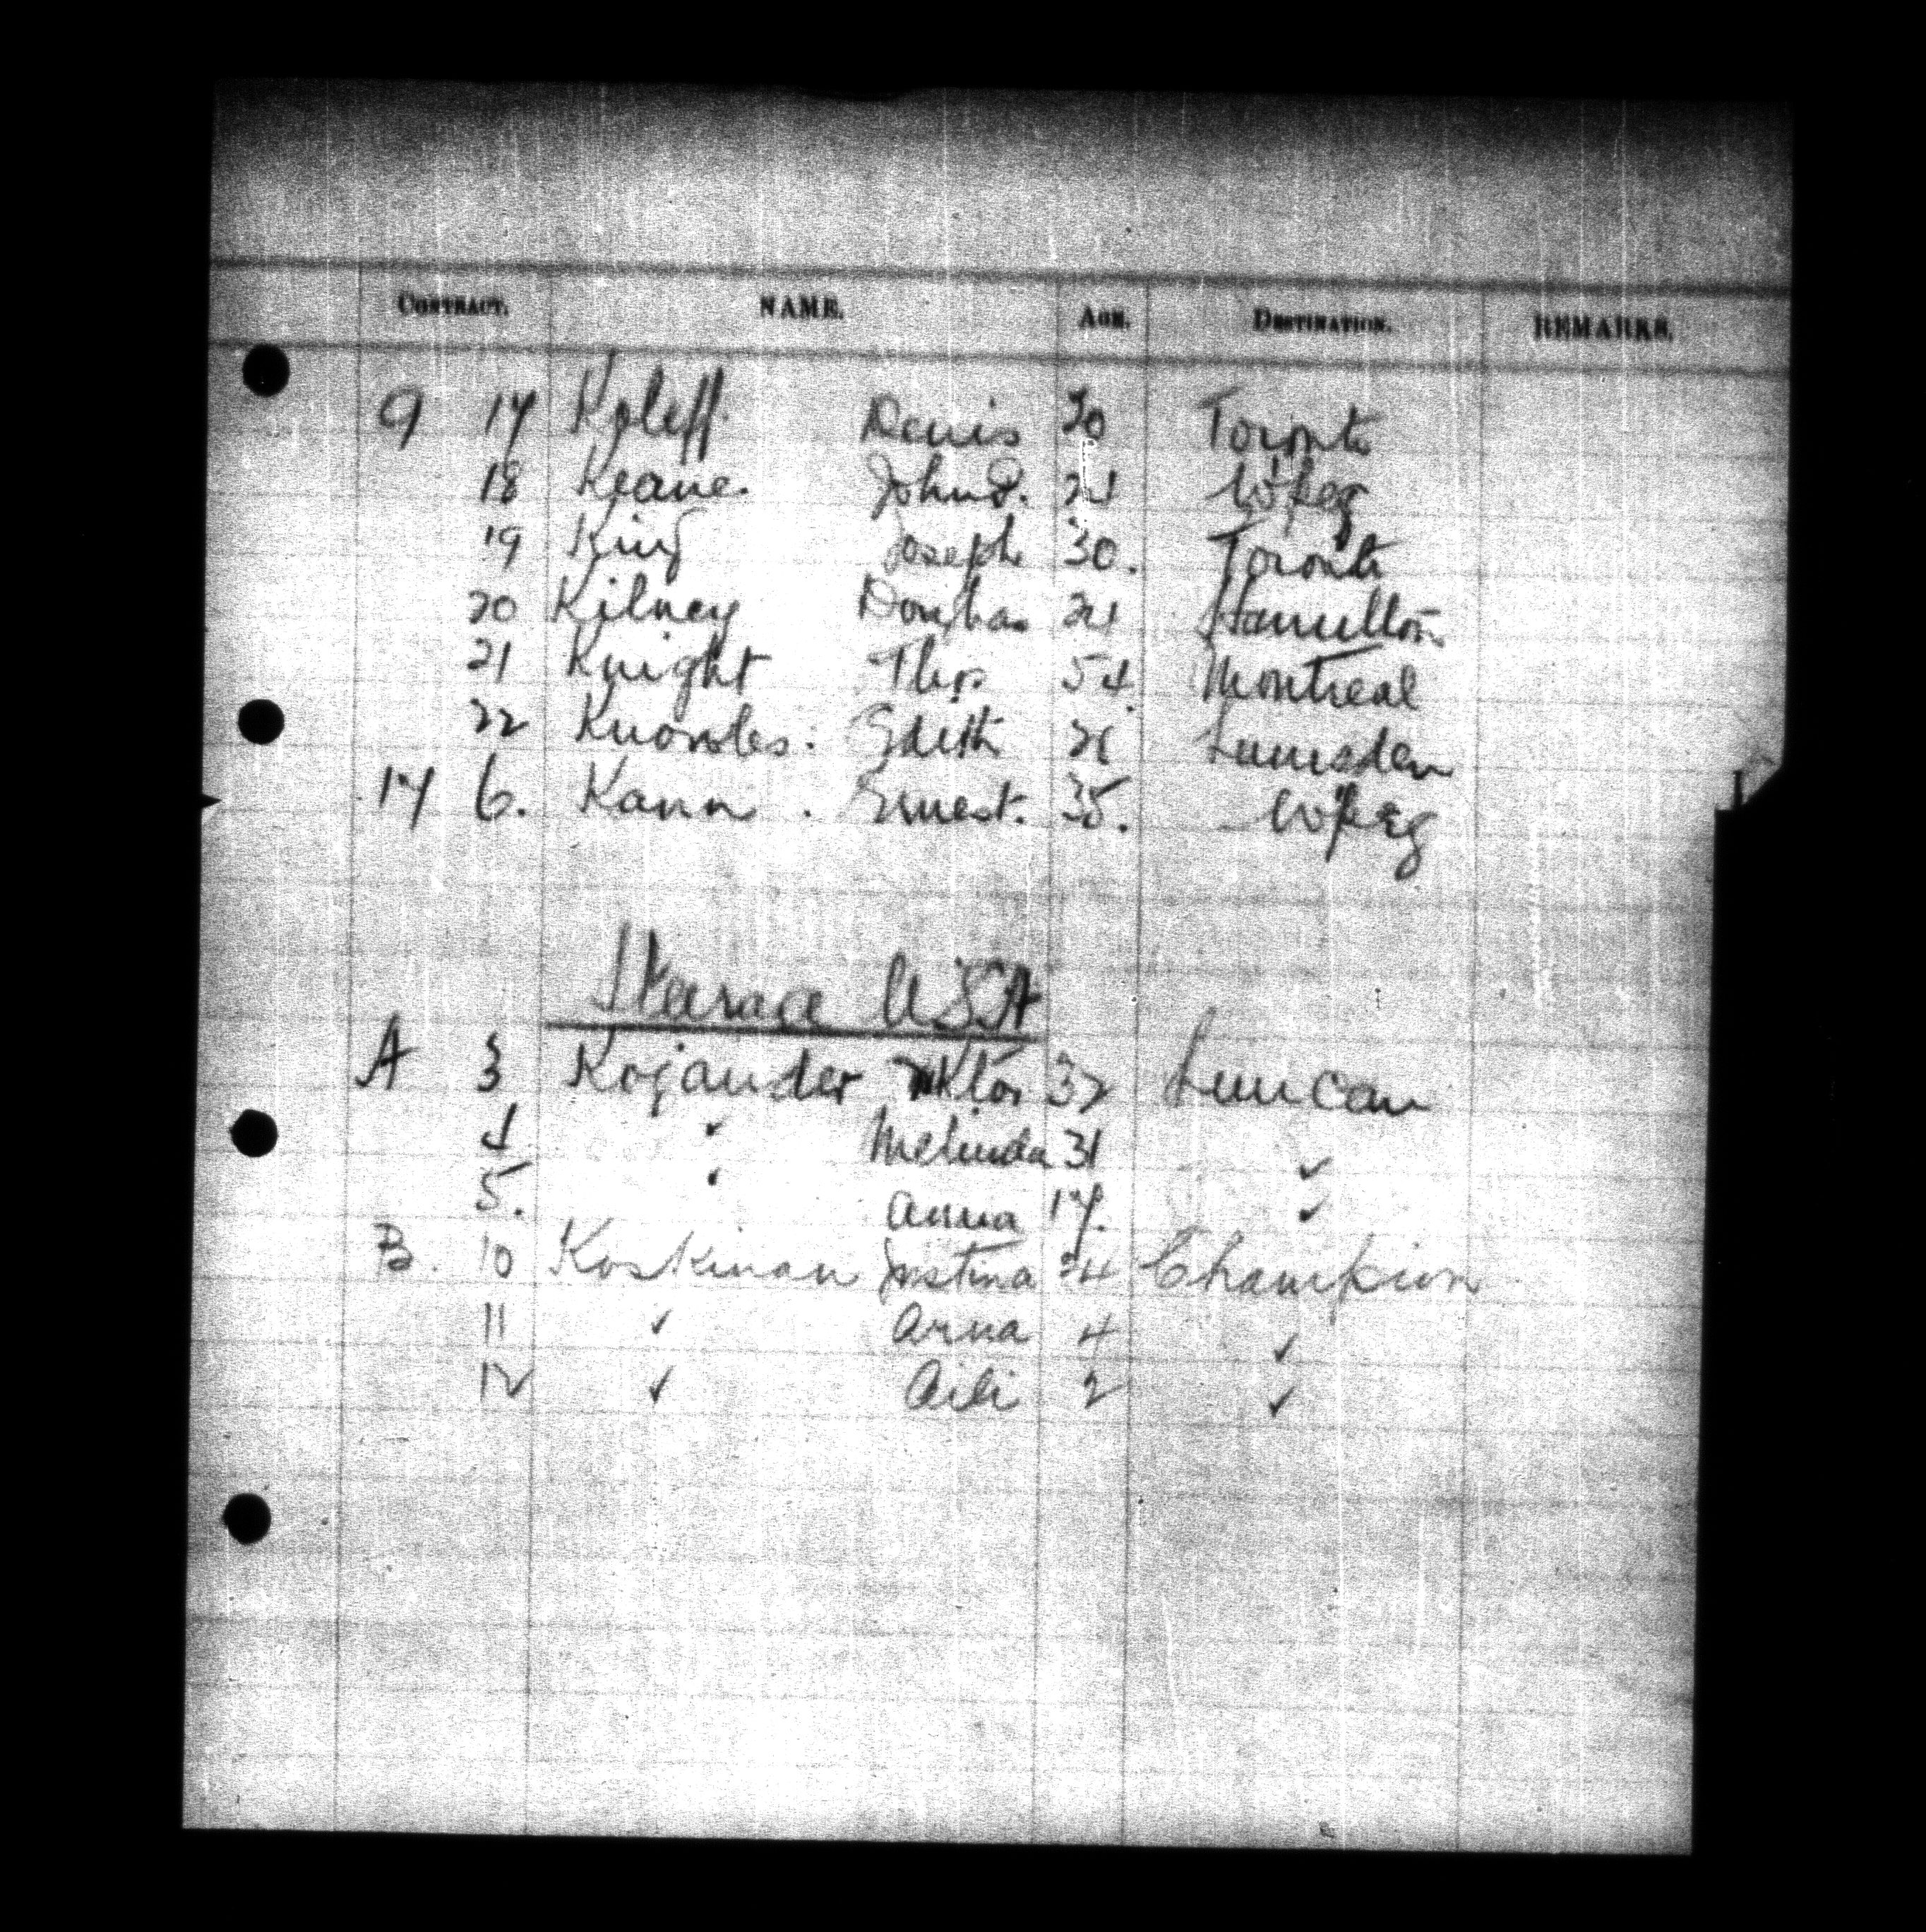 CONTRACT. NAME. AGE. DESTINATION. REMARKS.
9 17 Koleff. Denis 20 Toronto
18 Keane. John P. 21 W'peg
19 King Joseph 30. Toronto
20 Kilney Douglas 21 Hamilton
21 Knight Thos 54. Montreal
22 Knowles. Edith 26 Lumsden
17 6. Kann. Ernest. 35. W'peg
Steerage USA
A 3 Kojander Viktor 32 Duncan
4 " Melinda 31 "
5. " Anna 17. "
B. 10 Koskinan Justina 24 Champion
11 " Arna 4 "
12 " Aili 2 "